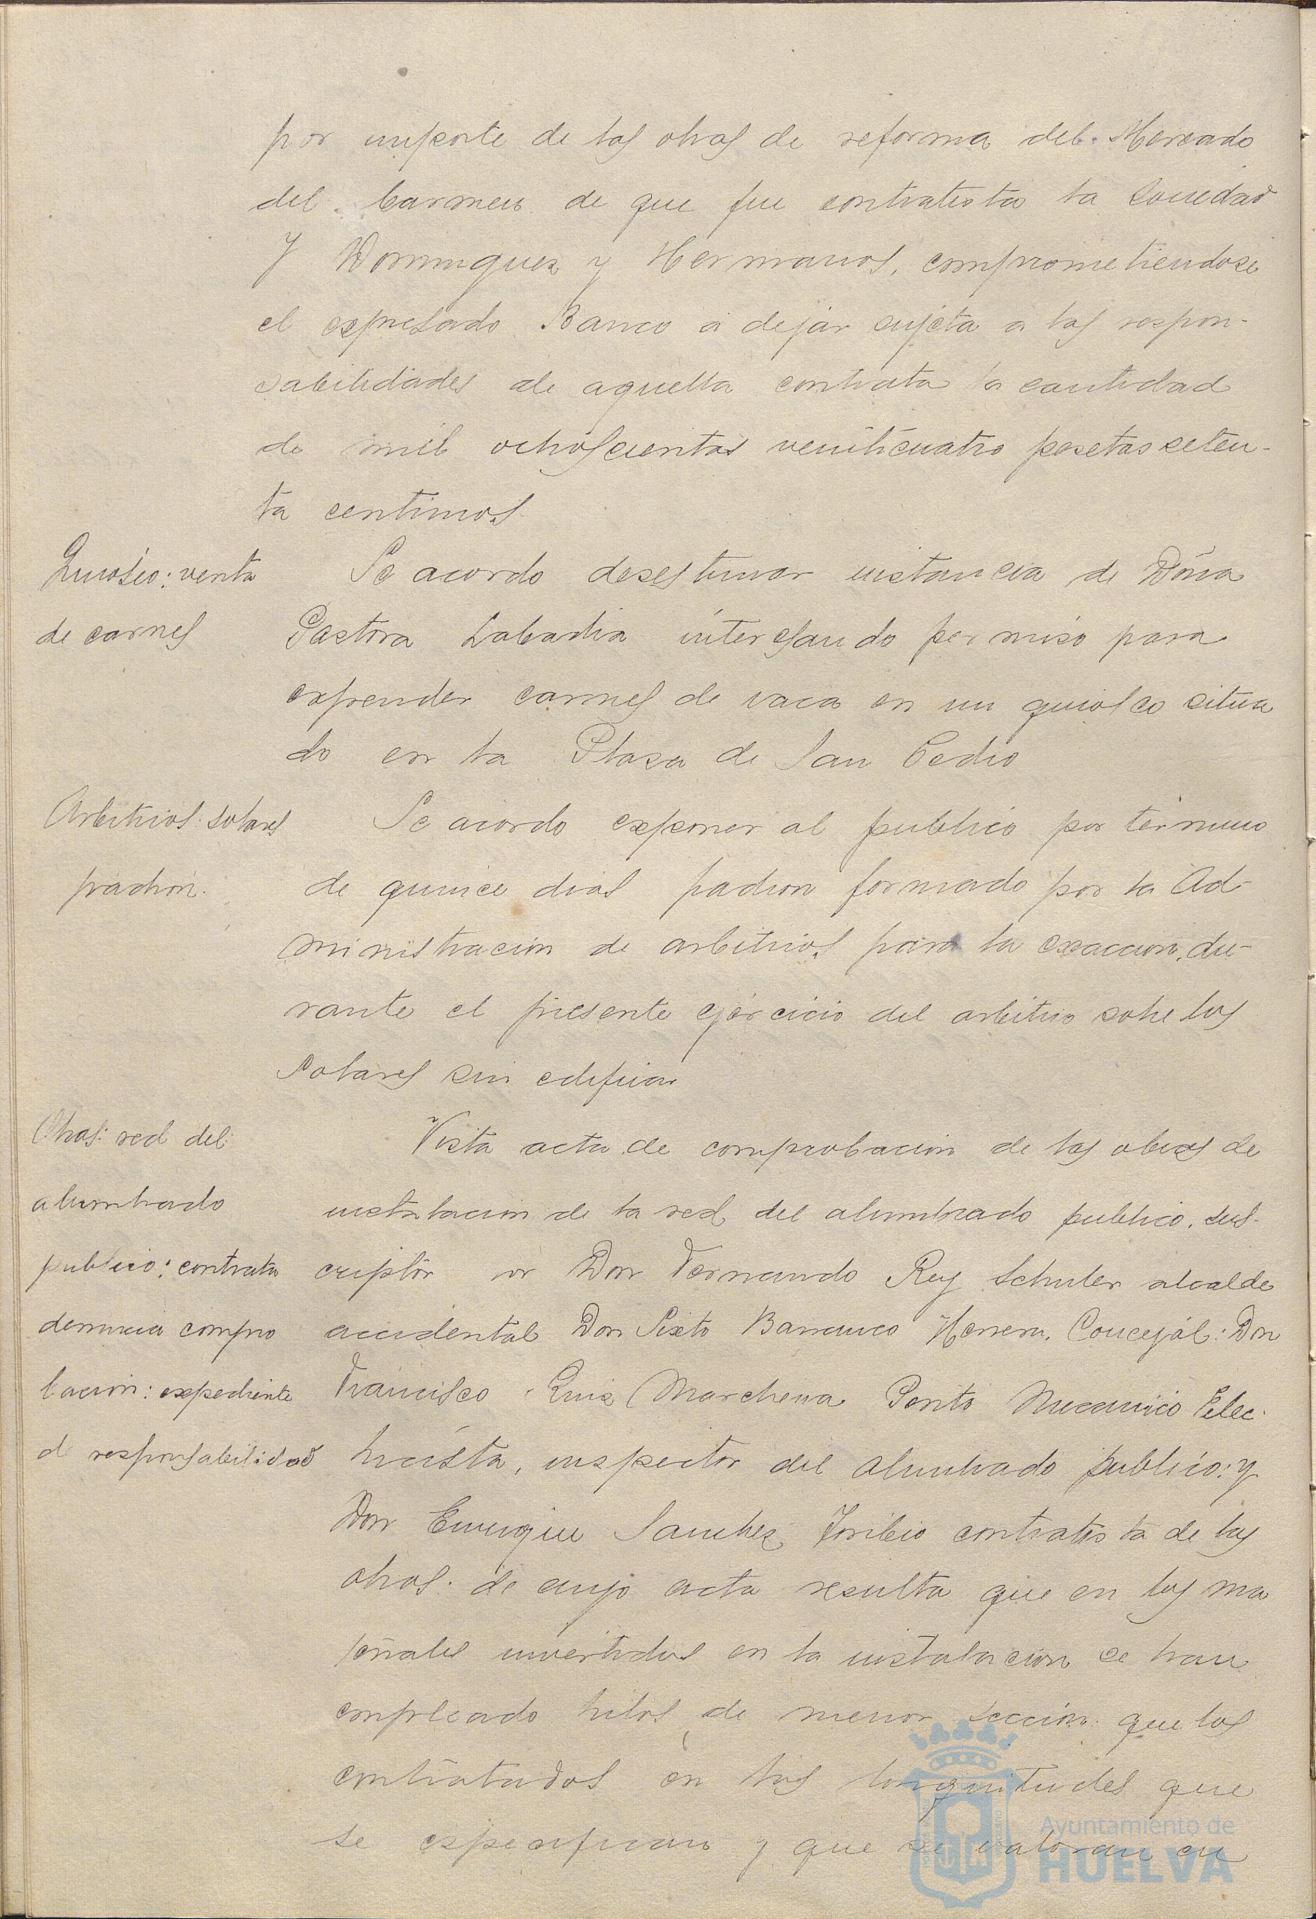 por importe de las obras de reforma del Mercado
del Carmen de que fue contratista la Sociedad
J Dominguez y Hermanos, comprometiendose
el expresado Banco a dejar sujeta a las respon-
sabilidades de aquella contrata la cantidad
de mil ochoscientas veinticuatro pesetas seten-
ta centimos.
Quiosco: venta
de carnes
Se acordo desestimar instancia de Doña
Pastora Labadia interesando permiso para
expender carnes de vaca en un quiosco situa
do en la Plaza de San Pedro
Arbitrios: solares
padron.
Se acordo exponer al publico por termino
de quince dias padron formado por la Ad-
ministracion de arbitrios para la exaccion, du-
rante el presente ejercicio del arbitrio sobre los
Solares sin edificar
Obras: red del
alumbrado
publico: contrata
denuncia compro
bacion: expediente
d responsabilidad
Vista acta de comprobacion de las obras de
instalacion de la red del alumbrado publico, sus-
cripta por Don Fernando Rey Schuler alcalde
accidental Don Sixto Barranco Herrera, Concejal: Don
Francisco Ruiz Marchena Perito Mecanico Elec-
tricista, inspector del alumbrado publico: y
Don Enrique Sanchez Toribio contratista de las
obras: de cuyo acta resulta que en los ma
teriales invertidos en la instalacion se han
empleado hilos de menor seccion que los
contratados en las longitudes que
se especifican y que se valoran en
Ayuntamiento de
HUELVA